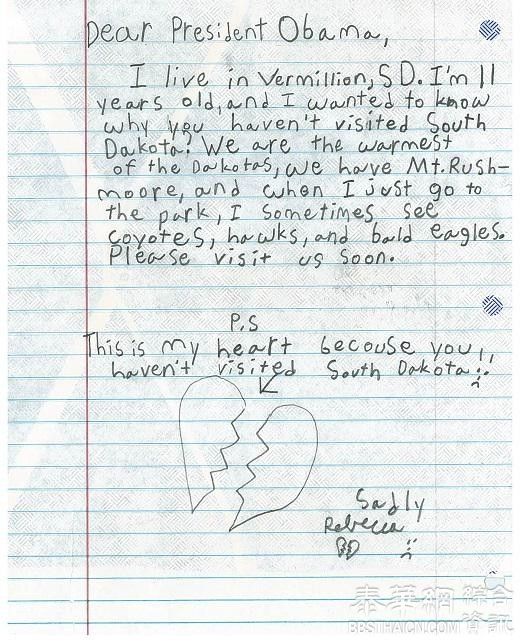 Dear President Obama,
I live in Vermillion, SD. I'm 11
years old, and I wanted to know
why you haven't visited South
Dakota? We are the warmest
of the Dakotas, we have Mt. Rush-
moore, and when I just go to
the park, I sometimes see
coyotes, hawks, and bald eagles.
Please visit us soon.
P.S
This is my heart becouse you
haven't visited South Dakota
Sadly
Rebecca
泰華網 綜合
BBSTIHAICN.COM 資訊